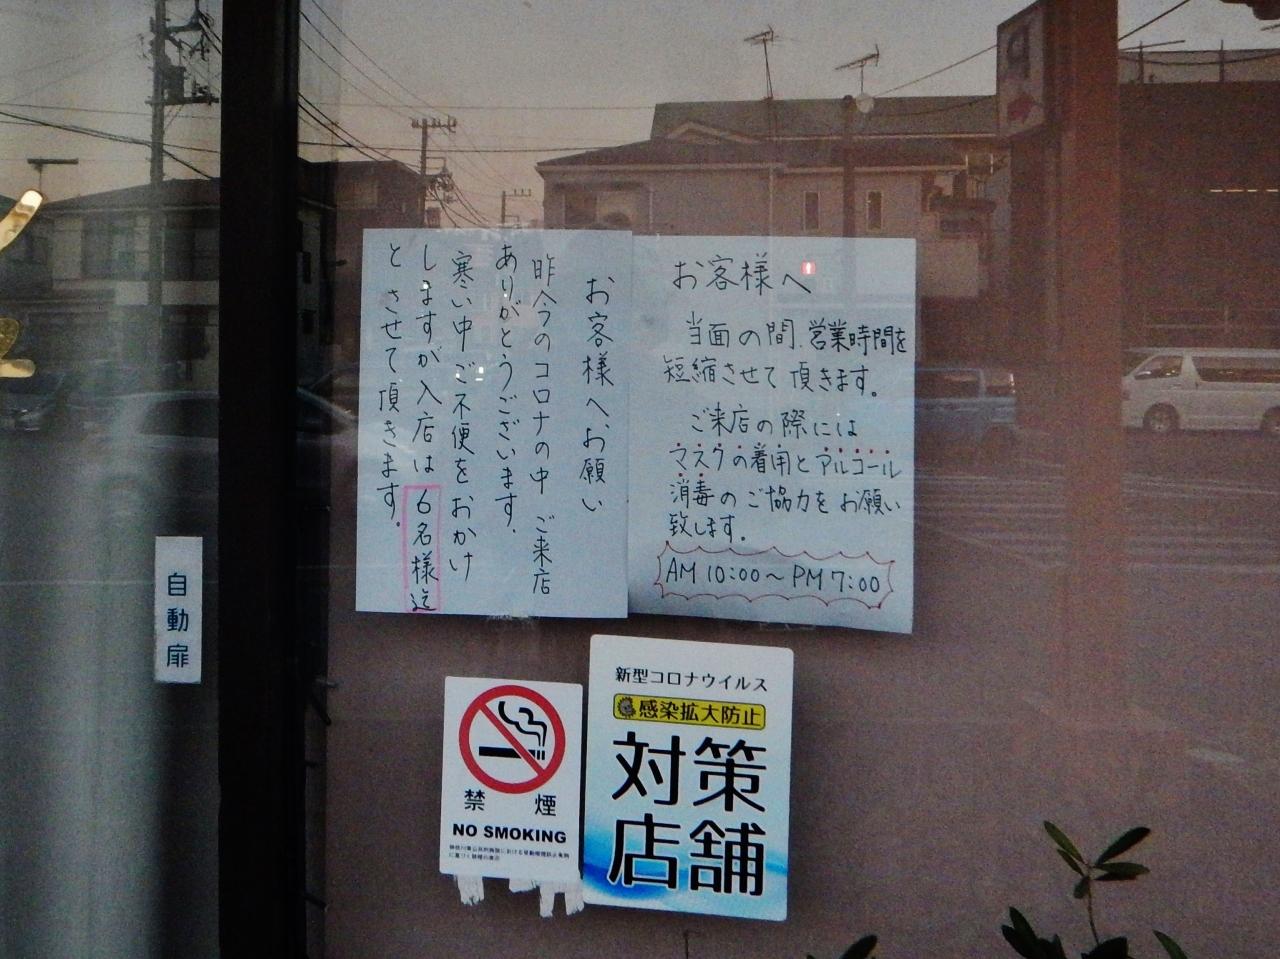 お客様へお願い
昨今のコロナの中 ご来店
ありがとうございます.
寒い中ご不便をおかけ
しますが入店は6名様迄
と させて頂きます.
お客様へ
当面の間.営業時間を
短縮させて頂きます。
ご来店の際には
マスクの着用とアルコール
消毒のご協力をお願い
致します。
AM 10:00～PM 7:00
自動扉
禁煙
NO SMOKING
新型コロナウイルス
感染拡大防止
対策
店舗